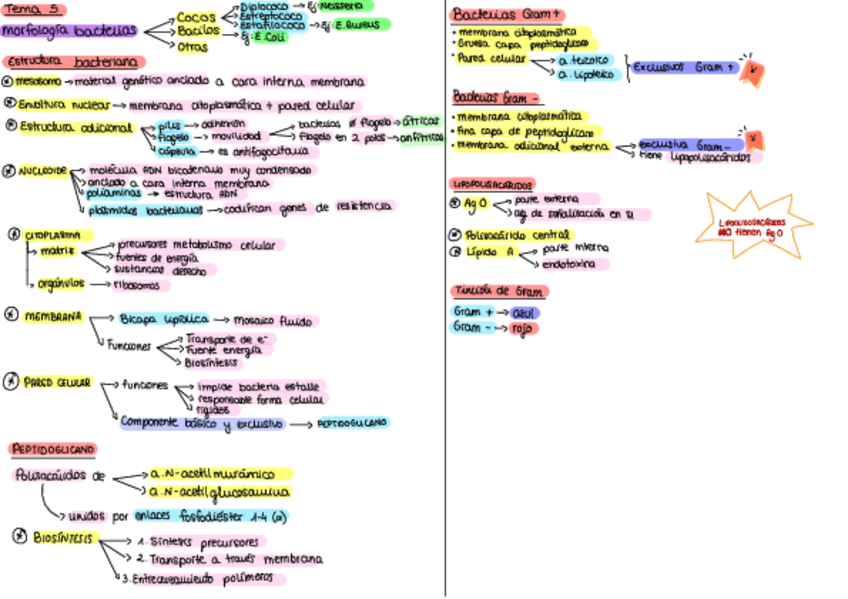 Tema 5
morfología bacterias
Cocos
Diplococo → Ej: Neisseria
Estreptococo
Estafilococo → Ej: E. Aureus
Bacilos → Ej: E. Coli
Otras
Estructura bacteriana
mesosoma → material genético anclado a cara interna membrana
Envoltura nuclear → membrana citoplasmática + pared celular
Estructura adicional
pilis → adhesión
flagelo → movilidad
bacterias ø flagelo → átricas
flagelo en 2 polos → anfítricas
cápsula → es antifagocitaria
NUCLEOIDE
molécula ADN bicatenario muy condensado
anclado a cara interna membrana
poliaminas → estructura ADN
plásmidos bacterianos → codifican genes de resistencia
CITOPLASMA
matriz
precursores metabolismo celular
fuentes de energía
sustancias desecho
orgánulos → ribosomas
MEMBRANA
Bicapa lipídica → Mosaico fluido
Funciones
Transporte de e-
Fuente energía
Biosíntesis
PARED CELULAR
funciones
impide bacteria estalle
responsable forma celular
rigidez
Componente básico y exclusivo → PEPTIDOGLICANO
PEPTIDOGLICANO
Polisacáridos de
a. N-acetil murámico
a. N-acetil glucosamina
unidos por enlaces fosfodiéster 1-4 (α)
BIOSÍNTESIS
1. Síntesis precursores
2. Transporte a través membrana
3. Entrecruzamiento polímeros
Bacterias Gram +
• membrana citoplasmática
• Gruesa capa peptidoglicano
• Pared celular
a. teicoico
a. lipoteico
Exclusivos Gram +
Bacterias Gram -
• membrana citoplasmática
• fina capa de peptidoglicano
• membrana adicional externa
exclusiva Gram -
tiene lipopolisacáridos
LIPOPOLISACÁRIDOS
Ag O
parte externa
ag. de señalización en sí
Polisacárido central
Lípido A
parte interna
endotoxina
LIPOOLIGOSACÁRIDOS
NO tienen Ag O
Tinción de Gram
Gram + → azul
Gram - → rojo